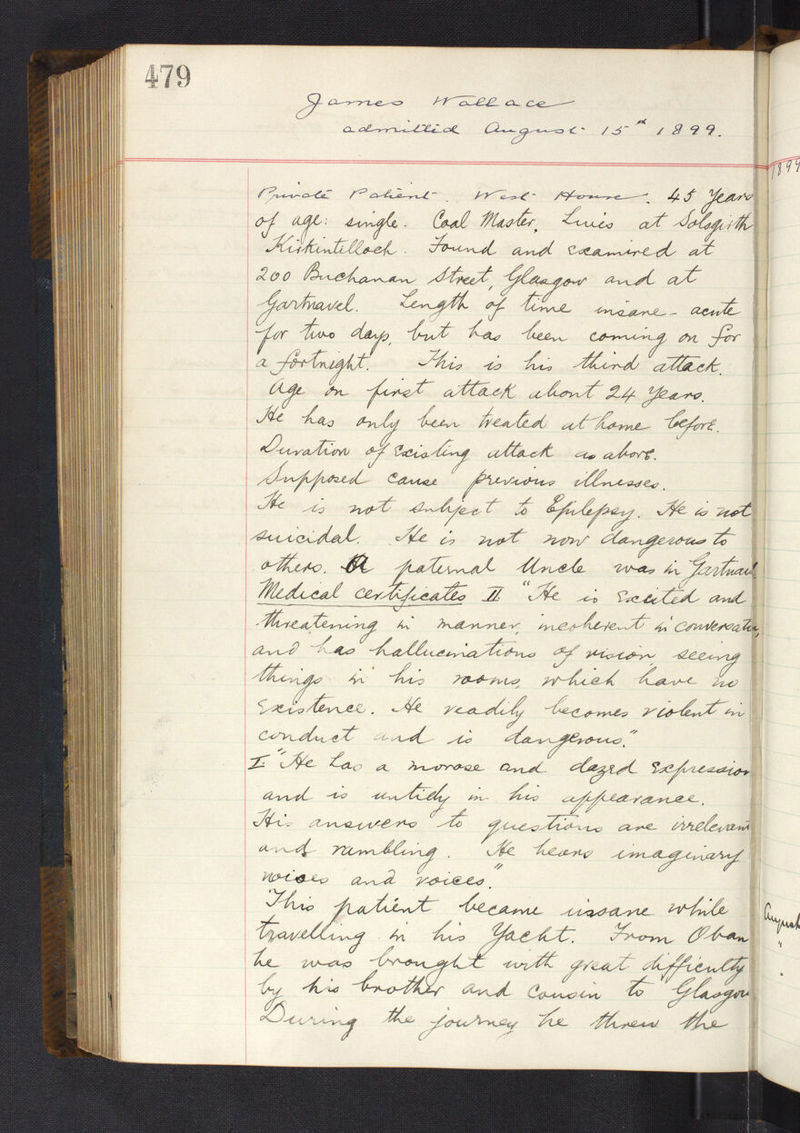 479
James Wallace
admitted August 15th 1899.
Private Patient. West House. 45 Years
of age: single. Coal Master. Lives at Solsgirth
Kirkintilloch. Found and examined at
200 Buchanan Street, Glasgow and at
Gartnavel. Length of time insane - acute
for two days, but has been coming on for
a fortnight. This is his third attack.
Age on first attack about 24 years.
He has only been treated at home before.
Duration of existing attack as above.
Supposed cause previous illnesses.
He is not subject to Epilepsy. He is not
suicidal. He is not now dangerous to
others. A paternal Uncle was in Gartnavel
Medical certificates II "He is excited and
threatening in manner, incoherent in conversation,
and has hallucinations of vision seeing
things in his rooms, which have no
existence. He readily becomes violent in
conduct and is dangerous."
I "He has a morose and dazed expression
and is untidy in his appearance.
His answers to questions are irrelevant
and rambling. He hears imaginary
noises and voices."
This patient became insane while
travelling in his Yacht. From Oban
he was brought with great difficulty
by his brother and cousin to Glasgow
During the journey he threw the
1899
August
"